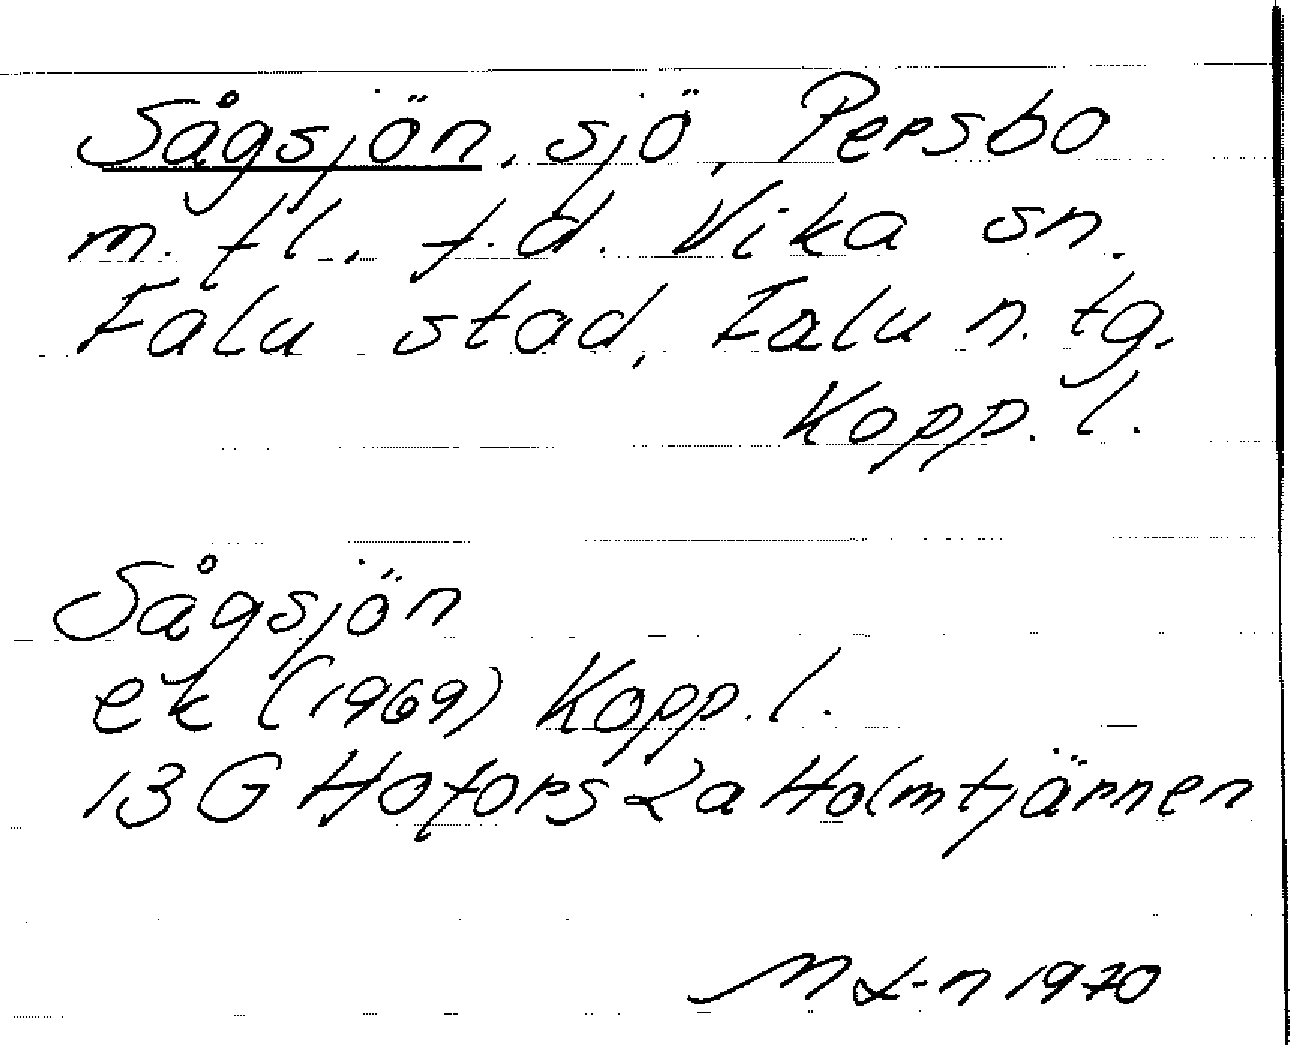 Sågsjön, sjö, Persbo
m. fl., f.d. Vika sn.
Falu stad, Falu n. tg.
Kopp. l.
Sågsjön
ek (1969) Kopp. l.
13 G Hofors 2a Holmtjärnen
M L-n 1970